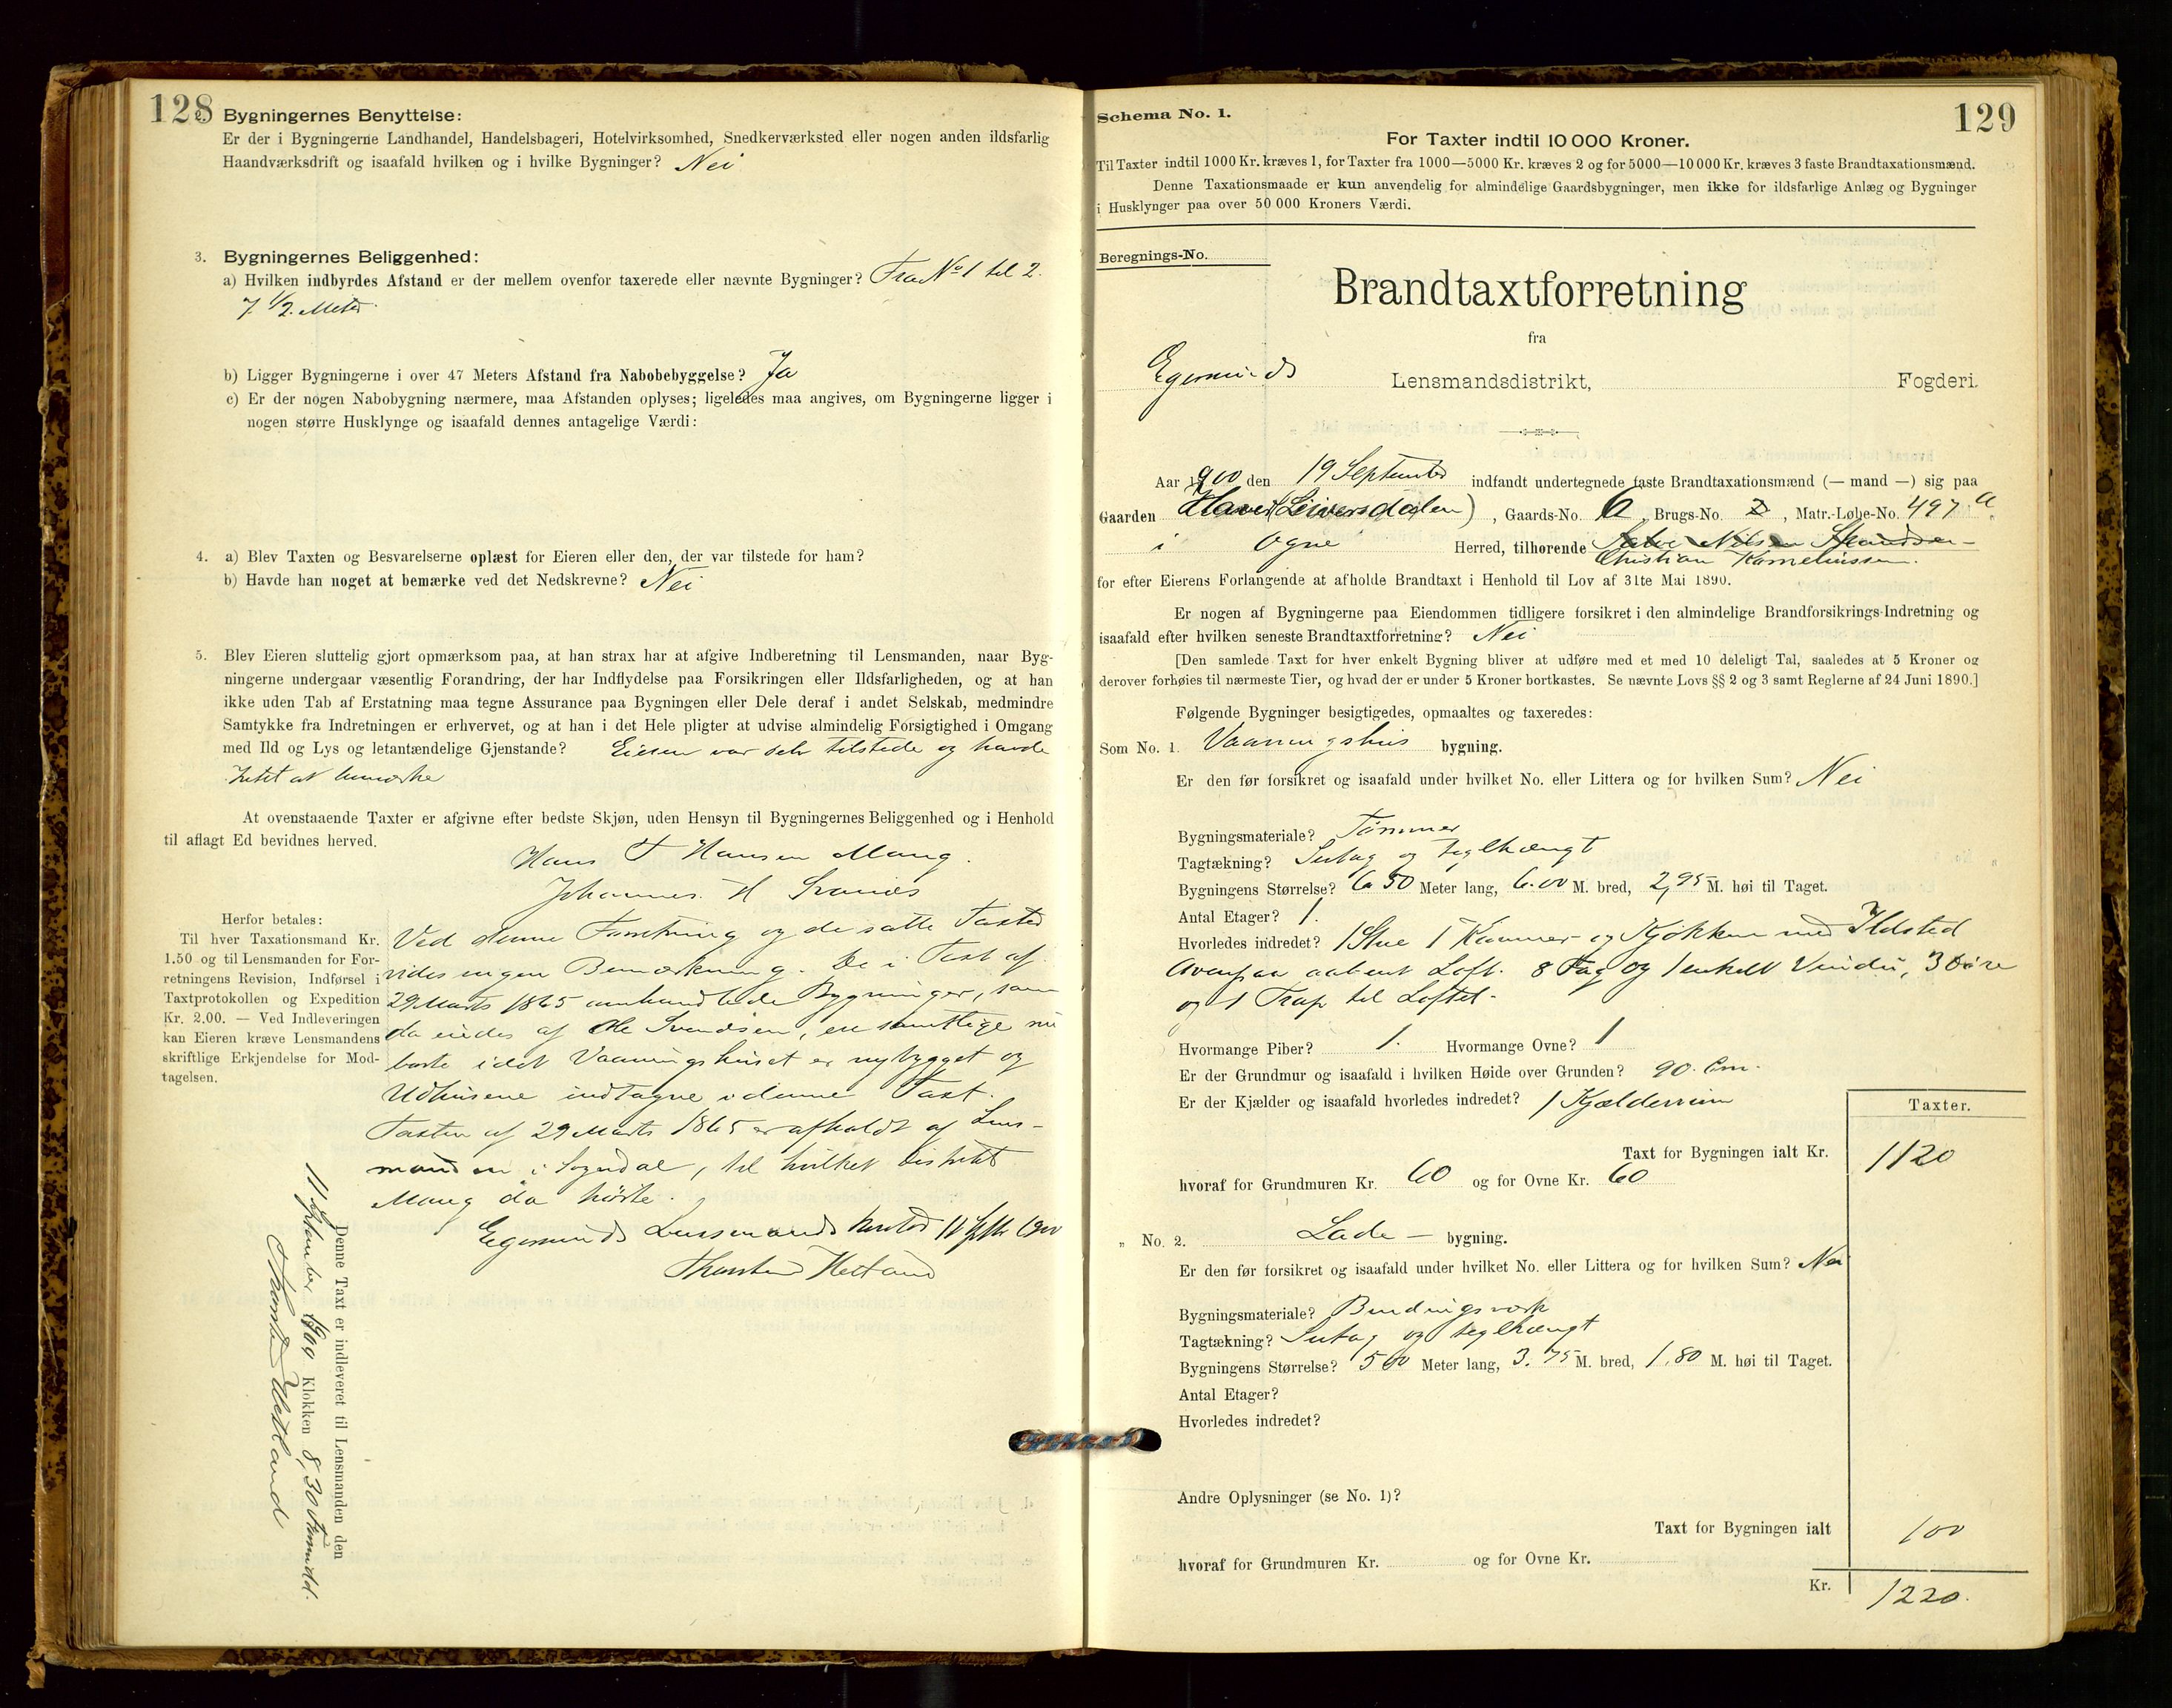 128
2. Bygningernes Benyttelse:
Er der i Bygningerne Landhandel, Handelsbageri, Hotelvirksomhed, Snedkerværksted eller nogen anden ildsfarlig
Haandværksdrift og isaafald hvilken og i hvilke Bygninger? Nei
3. Bygningernes Beliggenhed:
a) Hvilken indbyrdes Afstand er der mellem ovenfor taxerede eller nævnte Bygninger? Fra No 1 til 2.
7 1/2. Meter.
b) Ligger Bygningerne i over 47 Meters Afstand fra Nabobebyggelse? Ja
c) Er der nogen Nabobygning nærmere, maa Afstanden oplyses; ligeledes maa angives, om Bygningerne ligger i
nogen større Husklynge og isaafald dennes antagelige Værdi:
4. a) Blev Taxten og Besvarelserne oplæst for Eieren eller den, der var tilstede for ham?
b) Havde han noget at bemærke ved det Nedskrevne? Nei
5. Blev Eieren sluttelig gjort opmærksom paa, at han strax har at afgive Indberetning til Lensmanden, naar Byg-
ningerne undergaar væsentlig Forandring, der har Indflydelse paa Forsikringen eller Ildsfarligheden, og at han
ikke uden Tab af Erstatning maa tegne Assurance paa Bygningen eller Dele deraf i andet Selskab, medmindre
Samtykke fra Indretningen er erhvervet, og at han i det Hele pligter at udvise almindelig Forsigtighed i Omgang
med Ild og Lys og letantændelige Gjenstande? Eieren var selv tilstede og havde
Intet at bemærke
At ovenstaaende Taxter er afgivne efter bedste Skjøn, uden Hensyn til Bygningernes Beliggenhed og i Henhold
til aflagt Ed bevidnes herved.
Hans T Hansen Mong.
Johannes H Svanes
Herfor betales:
Til hver Taxationsmand Kr.
1.50 og til Lensmanden for For-
retningens Revision, Indførsel i
Taxtprotokollen og Expedition
Kr. 2.00. — Ved Indleveringen
kan Eieren kræve Lensmandens
skriftlige Erkjendelse for Mod-
tagelsen.
Ved denne Forretning og de satte Taxter
vides ingen Bemærkning. De i Taxt af
29 Marts 1865 omhandlede Bygninger, som
da eiedes af Ole Svendsen, ere samtlige nu
borte idet Vaaningshuset er nybygget og
Udhusene indtagne i denne Taxt.
Taxten af 29 Marts 1865 er afholdt af Lens-
manden i Sogndal, til hvilket Distrikt
Mong da hørte.
Egersunds Lensmands kontor 11 Septbr 1900
Thorsten Hetland
Denne Taxt er indleveret til Lensmanden den
11 September 1900 Klokken 8,30 Formidd.
Thorsten Hetland
129
Schema No. 1.
For Taxter indtil 10 000 Kroner.
Til Taxter indtil 1000 Kr. kræves 1, for Taxter fra 1000—5000 Kr. kræves 2 og for 5000—10 000 Kr. kræves 3 faste Brandtaxationsmænd.
Denne Taxationsmaade er kun anvendelig for almindelige Gaardsbygninger, men ikke for ildsfarlige Anlæg og Bygninger
i Husklynger paa over 50 000 Kroners Værdi.
Beregnings-No.
Brandtaxtforretning
fra
Egersunds Lensmandsdistrikt, Fogderi.
Aar 1900 den 19 September indfandt undertegnede faste Brandtaxationsmænd (— mand —) sig paa
Gaarden (Leiversdalen), Gaards-No. 6, Brugs-No. 2, Matr.-Løbe-No. 497 a
i Ogne Herred, tilhørende
Christian Korneliussen.
for efter Eierens Forlangende at afholde Brandtaxt i Henhold til Lov af 31te Mai 1890.
Er nogen af Bygningerne paa Eiendommen tidligere forsikret i den almindelige Brandforsikrings-Indretning og
isaafald efter hvilken seneste Brandtaxtforretning? Nei
[Den samlede Taxt for hver enkelt Bygning bliver at udføre med et med 10 deleligt Tal, saaledes at 5 Kroner og
derover forhøies til nærmeste Tier, og hvad der er under 5 Kroner bortkastes. Se nævnte Lovs §§ 2 og 3 samt Reglerne af 24 Juni 1890.]
Følgende Bygninger besigtigedes, opmaaltes og taxeredes:
Som No. 1. Vaaningshus bygning.
Er den før forsikret og isaafald under hvilket No. eller Littera og for hvilken Sum? Nei
Bygningsmateriale? Tømmer
Tagtækning? Sutag og teglhængt
Bygningens Størrelse? 6 50 Meter lang, 6.00 M. bred, 2,95 M. høi til Taget.
Antal Etager? 1.
Hvorledes indredet? 1 Stue 1 Kammer og Kjøkken med Ildsted
Ovenpaa aabent Loft. 8 Fag og 1 enkelt Vindu, 3 Døre
og 1 Trap til Loftet.
Hvormange Piber? 1. Hvormange Ovne? 1
Er der Grundmur og isaafald i hvilken Høide over Grunden? 90. Cm.
Er der Kjælder og isaafald hvorledes indredet? 1 Kjælderrum
Taxter.
Taxt for Bygningen ialt Kr. 1120
hvoraf for Grundmuren Kr. 60 og for Ovne Kr. 60
„ No. 2. Lade — bygning.
Er den før forsikret og isaafald under hvilket No. eller Littera og for hvilken Sum? Nei
Bygningsmateriale? Bindingsværk
Tagtækning? Sutag og teglhængt
Bygningens Størrelse? 5 00 Meter lang, 3.75 M. bred, 1.80 M. høi til Taget.
Antal Etager?
Hvorledes indredet?
Andre Oplysninger (se No. 1)?
Taxt for Bygningen ialt 100
hvoraf for Grundmuren Kr. og for Ovne Kr.
Kr. 1220.